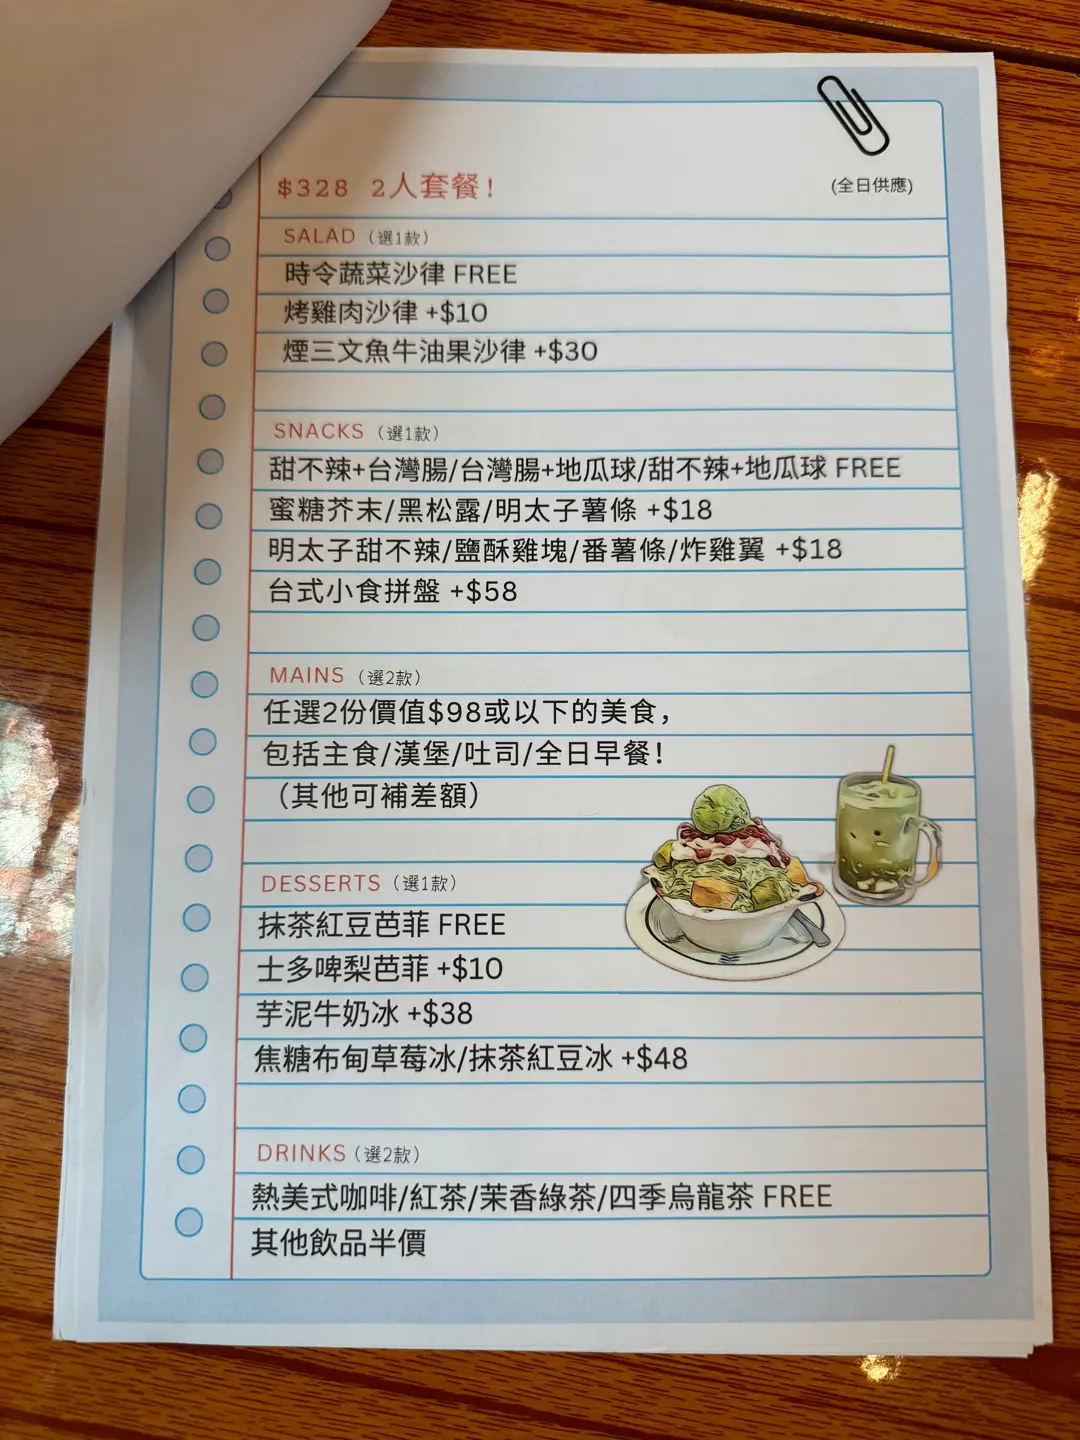 $328 2人套餐!
(全日供應)
SALAD（選1款）
時令蔬菜沙律 FREE
烤雞肉沙律 +$10
煙三文魚牛油果沙律 +$30
SNACKS（選1款）
甜不辣+台灣腸/台灣腸+地瓜球/甜不辣+地瓜球 FREE
蜜糖芥末/黑松露/明太子薯條 +$18
明太子甜不辣/鹽酥雞塊/番薯條/炸雞翼 +$18
台式小食拼盤 +$58
MAINS（選2款）
任選2份價值$98或以下的美食，
包括主食/漢堡/吐司/全日早餐！
（其他可補差額）
DESSERTS（選1款）
抹茶紅豆芭菲 FREE
士多啤梨芭菲 +$10
芋泥牛奶冰 +$38
焦糖布甸草莓冰/抹茶紅豆冰 +$48
DRINKS（選2款）
熱美式咖啡/紅茶/茉香綠茶/四季烏龍茶 FREE
其他飲品半價